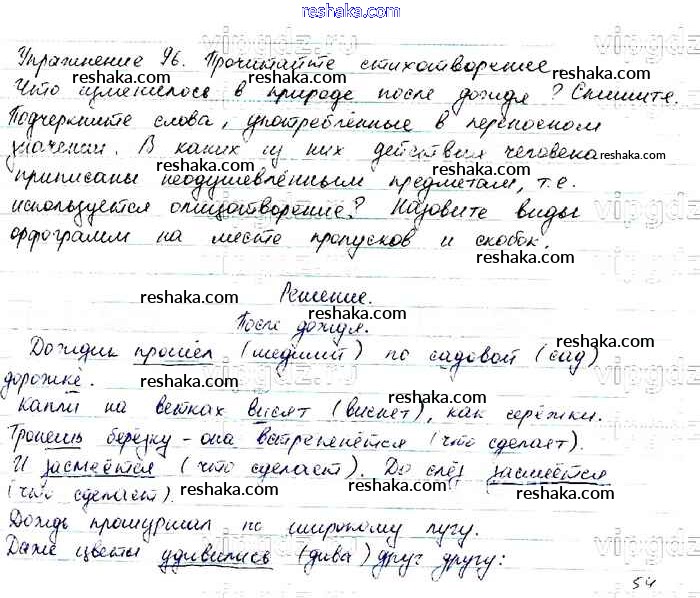 reshaka.com
Упражнение 96. Прочитайте стихотворение
reshaka.com reshaka.com
Что изменилось в природе после дождя? Спишите.
Подчеркните слова, употреблённые в переносном
значении. В каких из них действия человека reshaka.com
приписаны неодушевлённым предметам, т.е.
reshaka.com
используется олицетворение? Назовите виды
орфограмм на месте пропусков и скобок.
reshaka.com
Решение.
reshaka.com reshaka.com
После дождя.
Дождик прошёл (шедший) по садовой (сад)
дорожке. reshaka.com reshaka.com
Капли на ветках висят (виснет), как серёжки.
reshaka.com
Тронешь берёзку - она встрепенётся (что сделает).
reshaka.com
И засмеётся (что сделает). До слёз засмеётся
(что сделает). reshaka.com reshaka.com
Дождь прошуршал по широкому лугу.
reshaka.com
Даже цветы удивились (дива) друг другу:
reshaka.com
54
vipgdz.ru